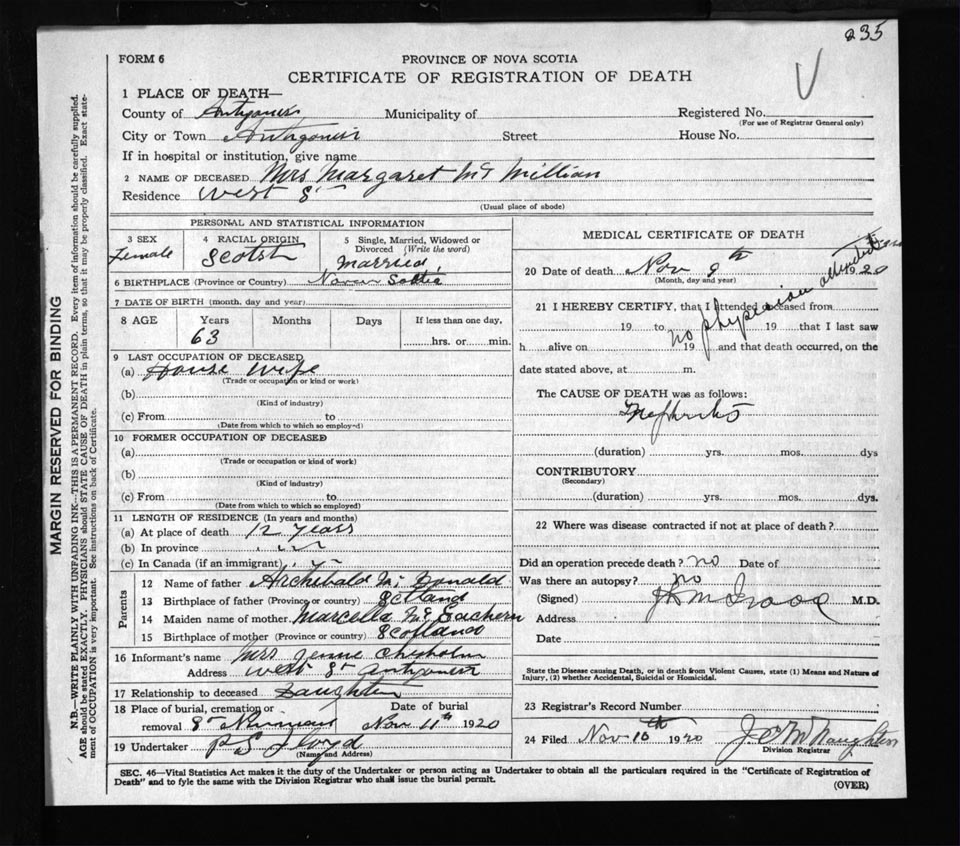 235
FORM 6
PROVINCE OF NOVA SCOTIA
CERTIFICATE OF REGISTRATION OF DEATH
V
1 PLACE OF DEATH—
County of Antigonis Municipality of Registered No.
(For use of Registrar General only)
City or Town Antagonis Street House No.
If in hospital or institution, give name
2 NAME OF DECEASED Mrs Margaret Mc Millian
Residence West St
(Usual place of abode)
PERSONAL AND STATISTICAL INFORMATION
3 SEX
Female
4 RACIAL ORIGIN
Scotch
5 Single, Married, Widowed or
Divorced (Write the word)
Married
6 BIRTHPLACE (Province or Country) Nova Scotia
7 DATE OF BIRTH (month, day and year)
8 AGE Years Months Days If less than one day,
63 hrs. or min.
9 LAST OCCUPATION OF DECEASED
(a) House Wife
(Trade or occupation or kind or work)
(b)
(Kind of industry)
(c) From to
(Date from which to which so employed)
10 FORMER OCCUPATION OF DECEASED
(a)
(Trade or occupation or kind of work)
(b)
(Kind of industry)
(c) From to
(Date from which to which so employed)
11 LENGTH OF RESIDENCE (In years and months)
(a) At place of death 12 years
(b) In province
(c) In Canada (if an immigrant)
Parents
12 Name of father Archibald Mc Donald
13 Birthplace of father (Province or country) Sctland
14 Maiden name of mother Marcella Mc Eachern
15 Birthplace of mother (Province or country) Scotland
16 Informant's name Mrs Jennie Chisholm
Address West St Antigonis
17 Relationship to deceased Daughter
18 Place of burial, cremation or Date of burial
removal St Ninians Nov 11th 1920
19 Undertaker P S Floyd
(Name and Address)
MEDICAL CERTIFICATE OF DEATH
20 Date of death Nov 9th 1920
(Month, day and year)
21 I HEREBY CERTIFY, that I attended deceased from
19 to 19 that I last saw
h alive on 19 and that death occurred, on the
no physician attended
date stated above, at m.
The CAUSE OF DEATH was as follows:
Nephritis
(duration) yrs. mos. dys
CONTRIBUTORY
(Secondary)
(duration) yrs. mos. dys.
22 Where was disease contracted if not at place of death?
Did an operation precede death? no Date of
Was there an autopsy? no
(Signed) M.D.
Address
Date
State the Disease causing Death, or in death from Violent Causes, state (1) Means and Nature of
Injury, (2) whether Accidental, Suicidal or Homicidal.
23 Registrar's Record Number
24 Filed Nov 10th 1920 J. C. McNaughton
Division Registrar
SEC. 46—Vital Statistics Act makes it the duty of the Undertaker or person acting as Undertaker to obtain all the particulars required in the "Certificate of Registration of
Death" and to fyle the same with the Division Registrar who shall issue the burial permit.
(OVER)
MARGIN RESERVED FOR BINDING
N.B.—WRITE PLAINLY, WITH UNFADING INK—THIS IS A PERMANENT RECORD. Every item of information should be carefully supplied.
AGE should be stated EXACTLY. PHYSICIANS should STATE CAUSE OF DEATH in plain terms, so that it may be properly classified. Exact state-
ment of OCCUPATION is very important. See instructions on back of Certificate.